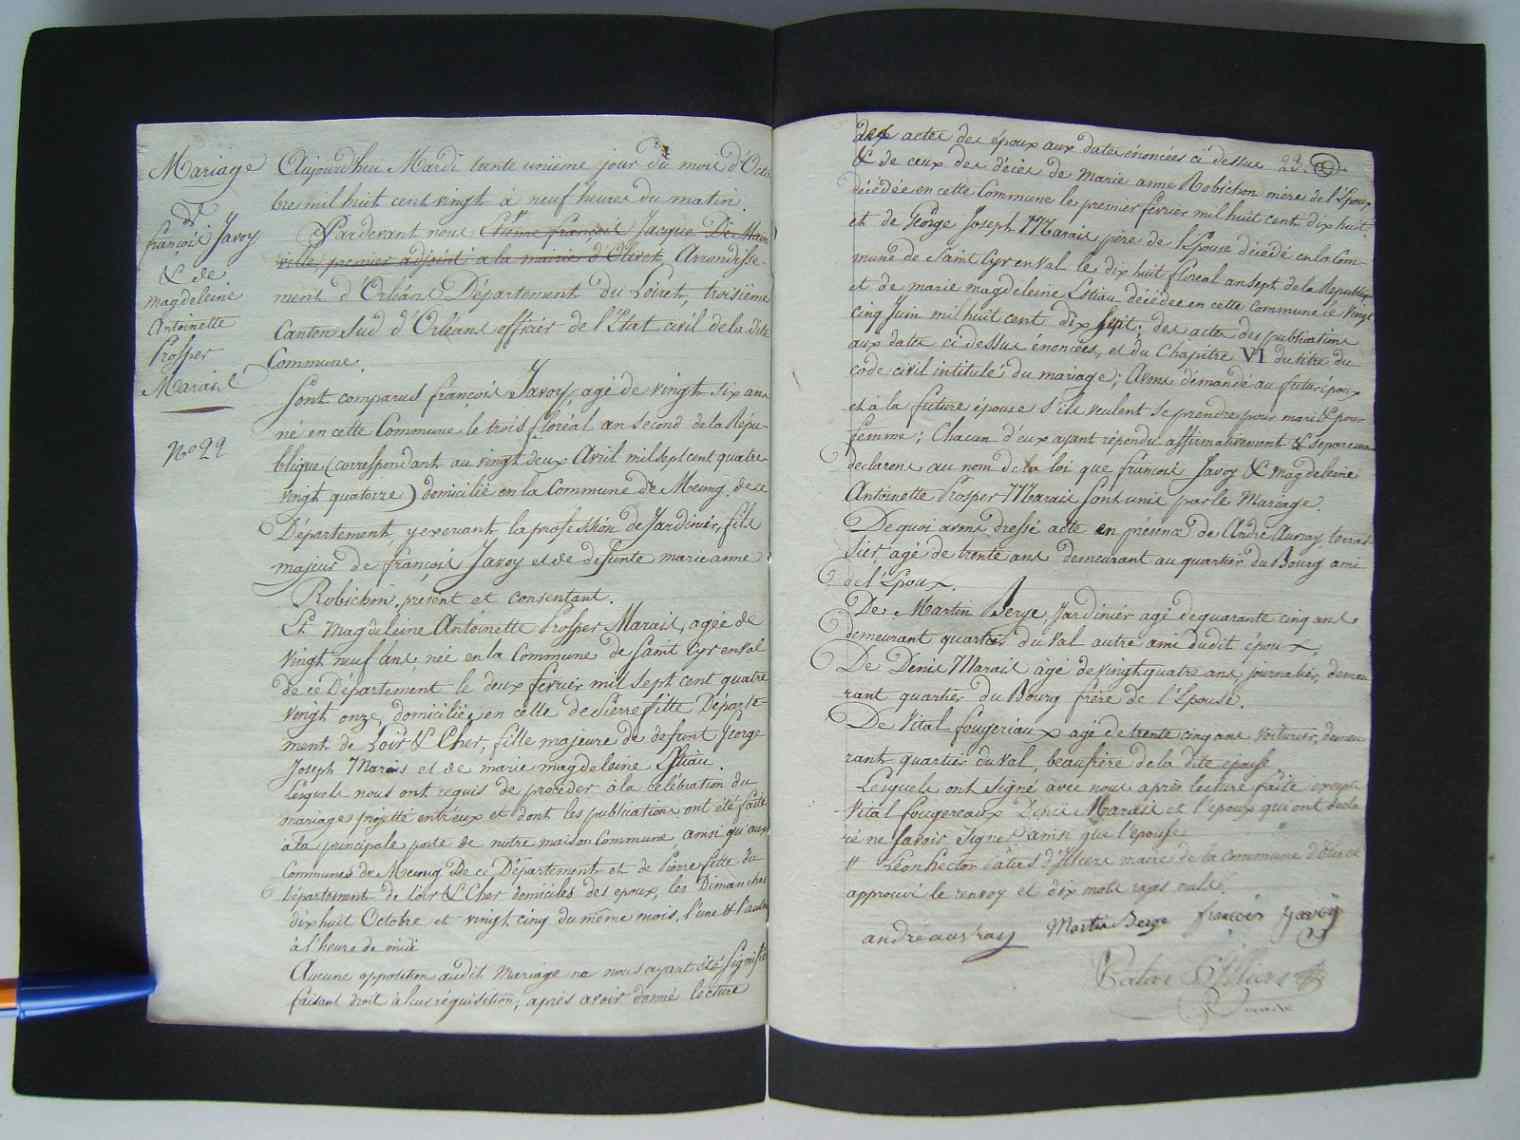 Mariage
De
françois Javoy
& de
magdeleine
Antoinette
Prosper
Marais
No 22
Aujourd'hui Mardi trente unième jour du mois d'Octo
bre mil huit cent vingt à neuf heures du matin.
Pardevant nous Etienne françois Jacques De Main
ville, premier adjoint a la mairie d'Olivet, Arrondisse-
ment d'Orléans Département du Loiret, troisième
Canton Sud d'Orléans officier de l'Etat civil de la dite
Commune.
Sont comparus françois Javoy, agé de vingt six ans
né en cette Commune le trois floréal an second de la Répu-
blique (correspondant au vingt deux Avril mil sept cent quatre
vingt quatorze) domicilié en la Commune de Meung de ce
Département, y exercant la profession de Jardinier, fils
majeur de françois Javoy et de defunte marie anne
Robichon, présent et consentant.
Et Magdeleine Antoinette Prosper Marais, agée de
vingt neuf ans née en la Commune de Saint Cyr en Val
de ce Département le deux fevrier mil sept cent quatre
vingt onze, domiciliée en celle de Pierrefitte Départe-
ment de Loir & Cher, fille majeure de defunt George
Joseph Marais et de marie magdeleine Estiau.
lesquels nous ont requis de proceder à la célébration du
mariage projetté entr'eux et dont les publications ont été faites
à la principale porte de notre maison Commune, ainsi qu'aux
Communes de Meung De ce Département et de Pierrefitte du
Département de Loir & Cher domiciles des epoux, les Dimanches
dix huit Octobre et vingt cinq du même mois, l'une & l'autre
à l'heure de midi
Aucune opposition audit Mariage ne nous ayant été signifié
faisant droit à leur réquisition, après avoir donné lecture
des actes des époux aux dates énoncées ci dessus 22.
& de ceux des décès de Marie anne Robichon mère de l'Epoux
décédée en cette Commune le premier fevrier mil huit cent dix huit
et de George Joseph Marais père de l'Epouse décédé en la Com-
mune de Saint Cyr en Val le dix huit floreal an sept de la Republique
et de marie magdeleine Estiau, décédée en cette Commune le vingt
cinq Juin mil huit cent dix sept; des actes des publications
aux dates ci dessus énoncées, et du Chapitre VI du titre du
code civil intitulé du mariage; Avons démandé au futur époux
et à la future épouse s'ils veulent se prendre pour mari & pour
femme; Chacun d'eux ayant répondu affirmativement & separement
declarons au nom de la loi que francois Javoy & magdeleine
Antoinette Prosper Marais sont unis par le Mariage.
De quoi avons dressé acte en présence de André Auvray terras-
sier, agé de trente ans demeurant au quartier du Bourg ami
de l'Epoux.
De Martin Berge, Jardinier agé de quarante cinq ans
demeurant quartier du Val autre ami dudit époux.
De Denis Marais âgé de vingt quatre ans, journalier, demeu-
rant quartier du Bourg frère de l'Epouse.
De Vital fougeriaux agé de trente cinq ans voiturier, demeu-
rant quartier du val, beaufrère de la dite épouse
Lesquels ont signé avec nous après lecture faite excepté
Vital fougereaux Denis Marais et l'epoux qui ont decla
ré ne savoir signer ainsi que l'epouse
" Leon hector Patas d'Illiers maire de la commune d'Olivet
approuvé le renvoy et dix mots rayés nuls.
andré auvray Martin Berge françois Javoy
Patas d'Illiers